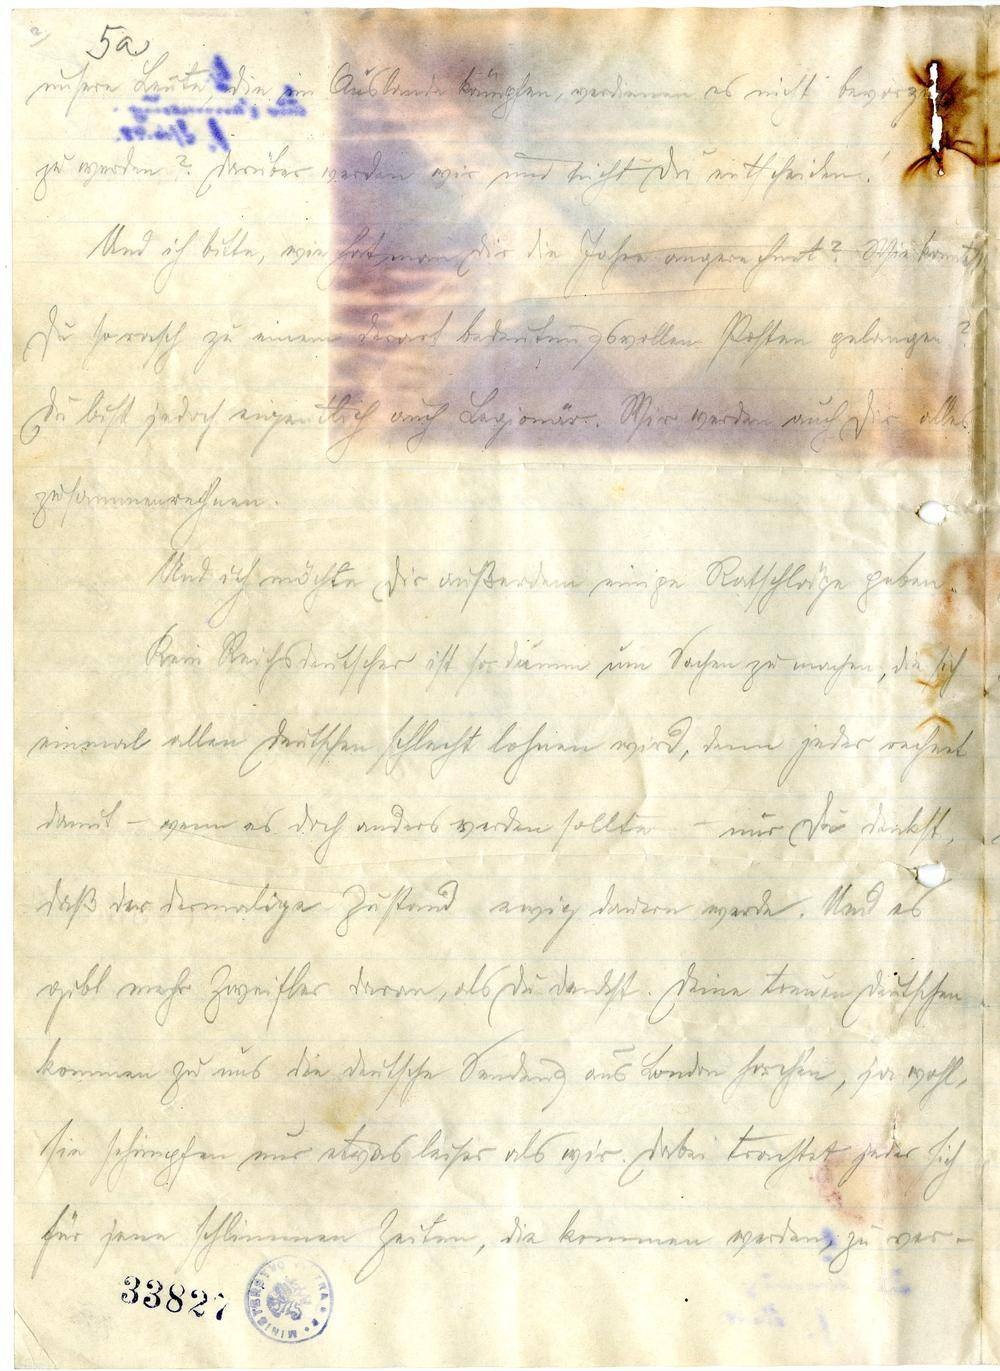 5a
unsere Leute, die im Auslande kämpfen, verdienen es nicht bevorzugt
zu werden? Darüber werden wir und nicht Du entscheiden!
Und ich bitte, wie hat man Dir die Jahre angerechnet? Wie konntest
Du so rasch zu einem derart bedeutungsvollen Posten gelangen?
Du bist jedoch eigentlich auch Legionär. Wir werden auch Dir alles
zusammenrechnen.
Und ich möchte Dir außerdem einige Ratschläge geben.
Kein Reichsdeutscher ist so dumm um Sachen zu machen, die sich
einmal allen Deutschen schlecht lohnen wird, denn jeder rechnet
damit – wenn es doch anders werden sollte – nur Du denkst,
daß der dermalige Zustand ewig dauern werde. Und es
gibt mehr Zweifler daran, als Du denkst. Deine treuen Deutschen
kommen zu uns die deutsche Sendung aus London horchen, ja wohl,
sie schimpfen nur etwas leiser als wir. Dabei trachtet jeder sich
für jene schlimmen Zeiten, die kommen werden, zu ver-
33827
MINISTERSTVO VNITRA